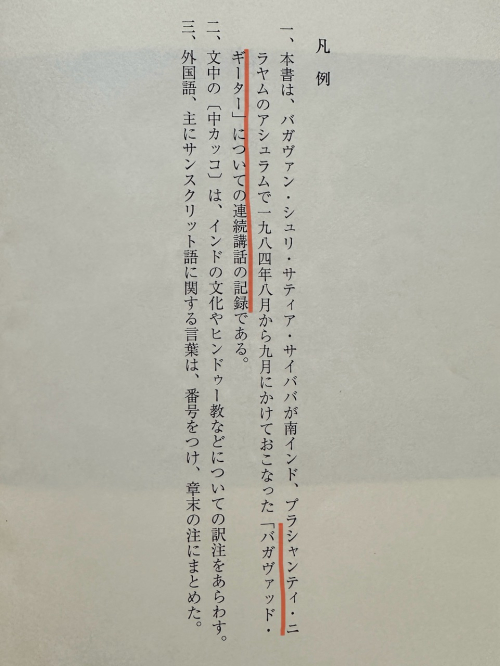 凡例
一、本書は、バガヴァン・シュリ・サティア・サイババが南インド、プラシャンティ・ニ
ラヤムのアシュラムで一九八四年八月から九月にかけておこなった「バガヴァッド・
ギーター」についての連続講話の記録である。
二、文中の〔中カッコ〕は、インドの文化やヒンドゥー教などについての訳注をあらわす。
三、外国語、主にサンスクリット語に関する言葉は、番号をつけ、章末の注にまとめた。